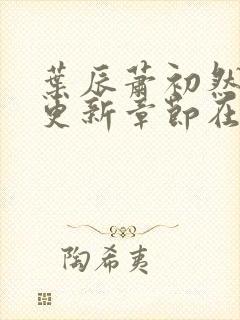 葉辰蕭初然
更新章節在
陶希夷